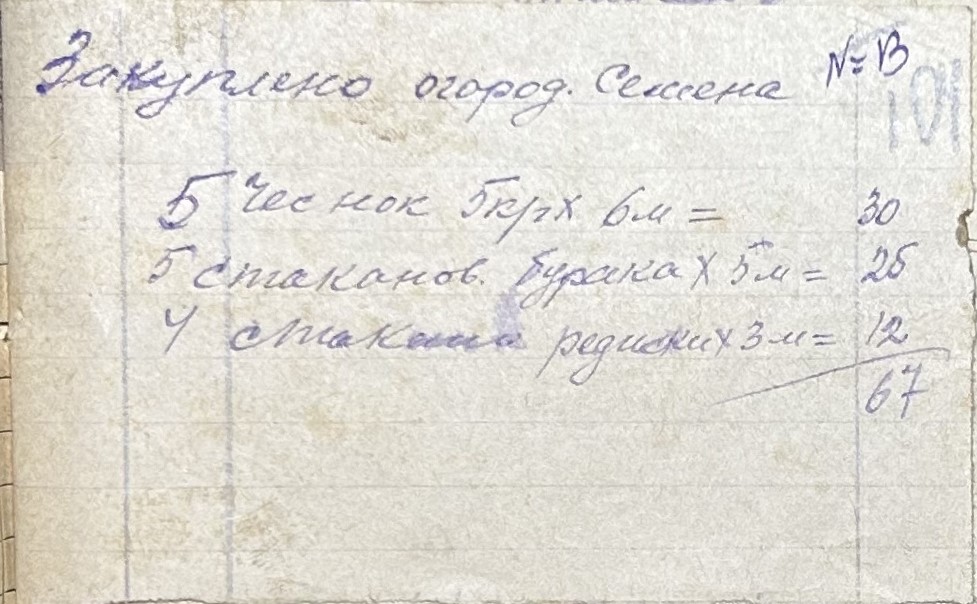 Закуплено огород. Семена N=B
101
5 Чеснок 5крх 6м = 30
5 стаканов. бурака х 5м = 25
4 стакана редиски х 3м = 12
67